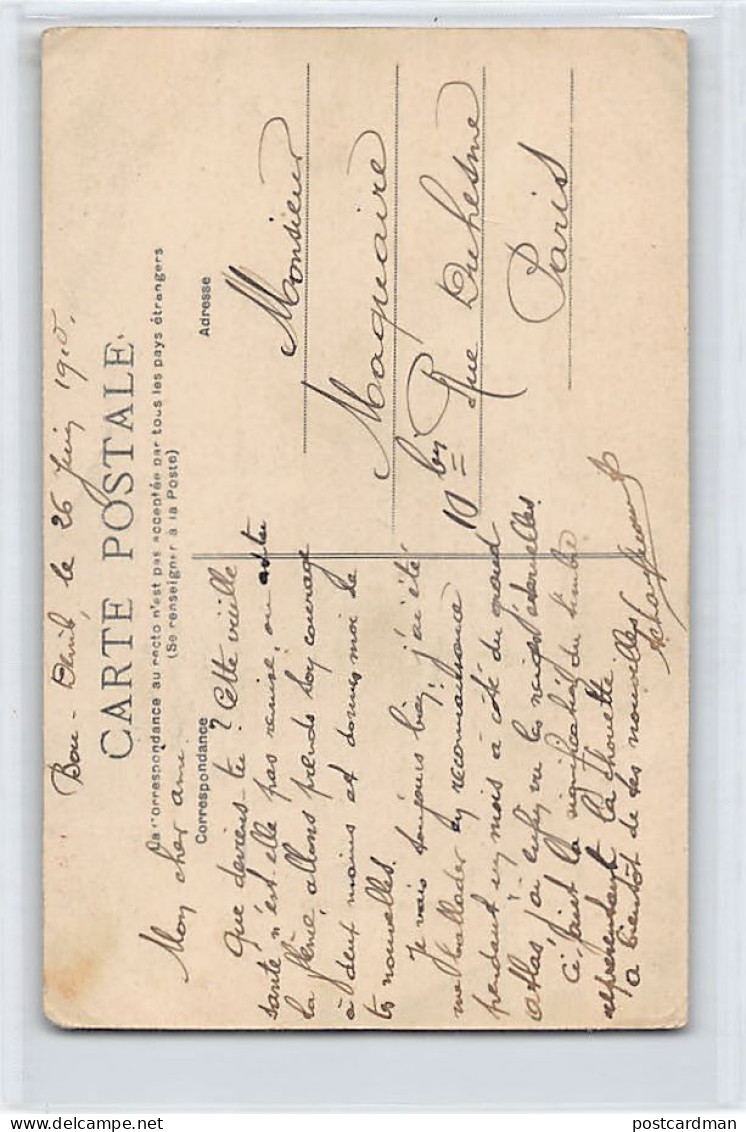 Bou-Denib, le 26 Juin 1910.
CARTE POSTALE
La correspondance au recto n'est pas acceptée par tous les pays étrangers
(Se renseigner à la Poste)
Correspondance
Adresse
Mon cher ami.
Que deviens-tu? Cette vieille
santé n'est-elle pas remise, ou as-tu
la flême, allons prends ton courage
à deux mains et donnes moi de
tes nouvelles.
Je vais toujours bien, j'ai été
me ballader en reconnaissance
pendant un mois à côté du grand
Atlas, j'ai enfin vu les neiges éternelles.
Ci-joint la signification du timbre
représentant la chouette
A bientôt de tes nouvelles
Monsieur
Maquaire
10 bis Rue Duhesme
Paris
postcardman